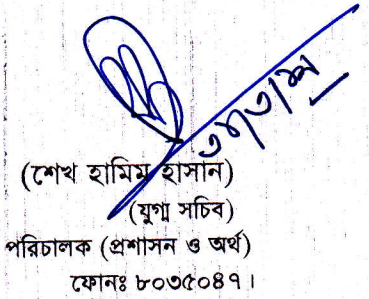 (শেখ হামিম হাসান)
(যুগ্ম সচিব)
পরিচালক (প্রশাসন ও অর্থ)
ফোনঃ ৮০৩৫০৪৭।